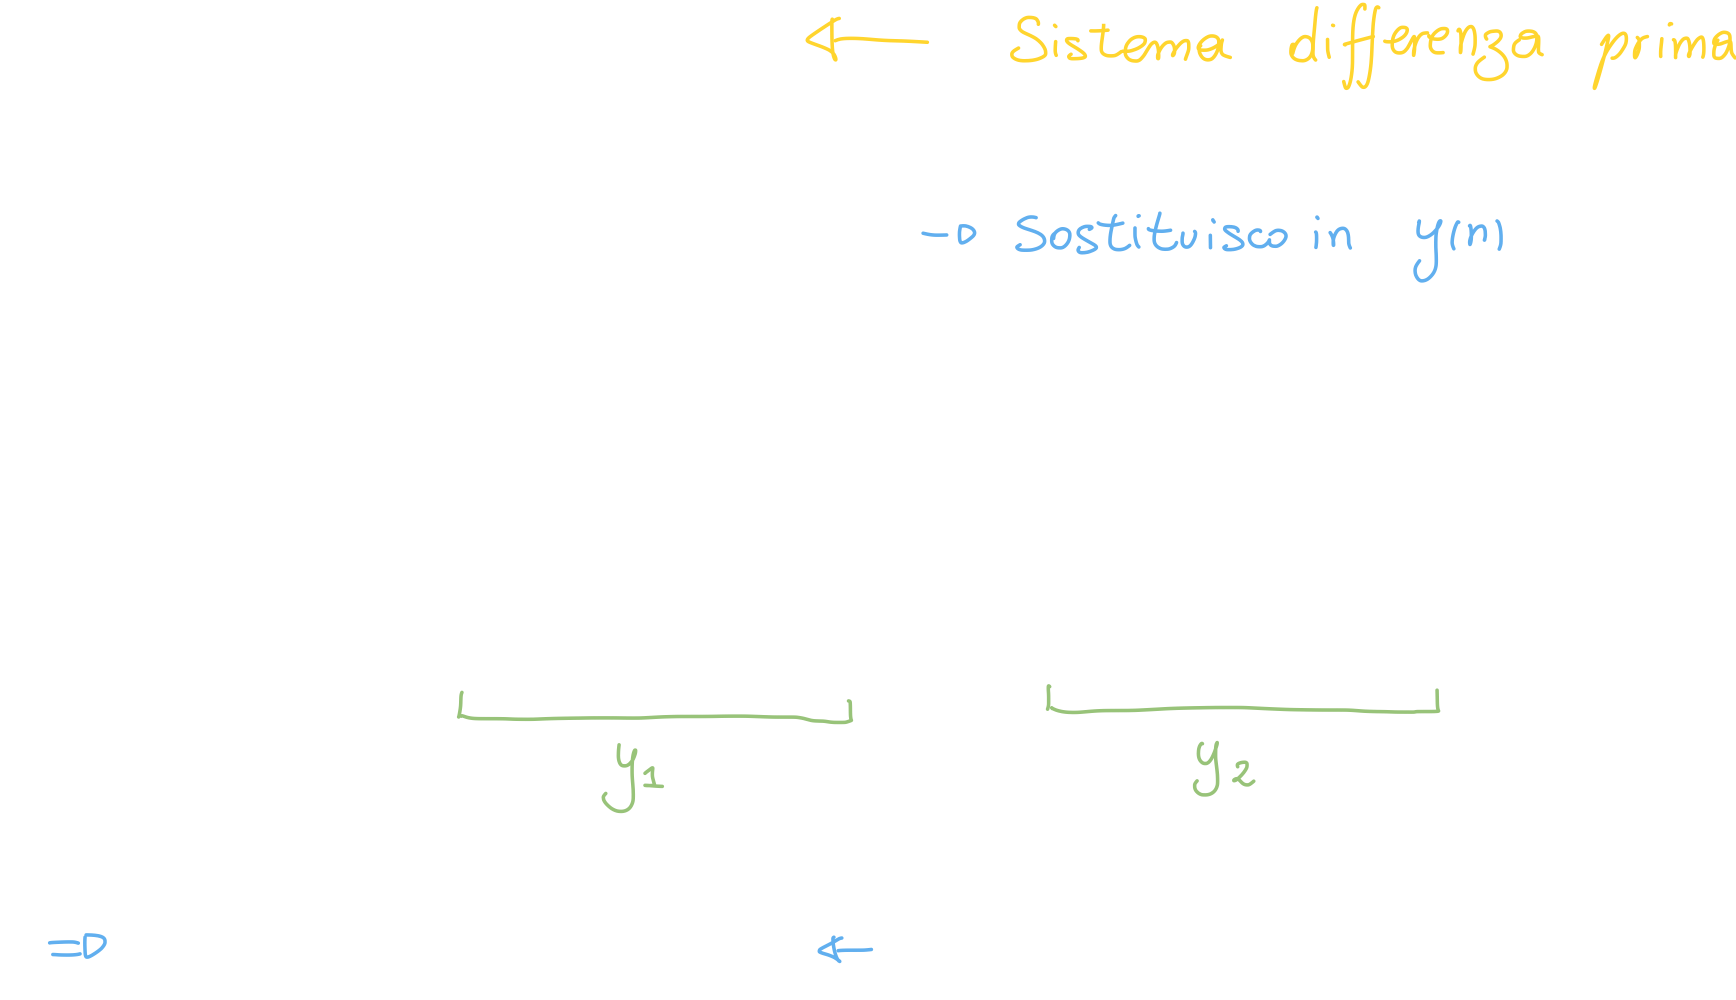 ← Sistema differenza prima
→ Sostituisco in y(n)
y1 y2
⇒ ←